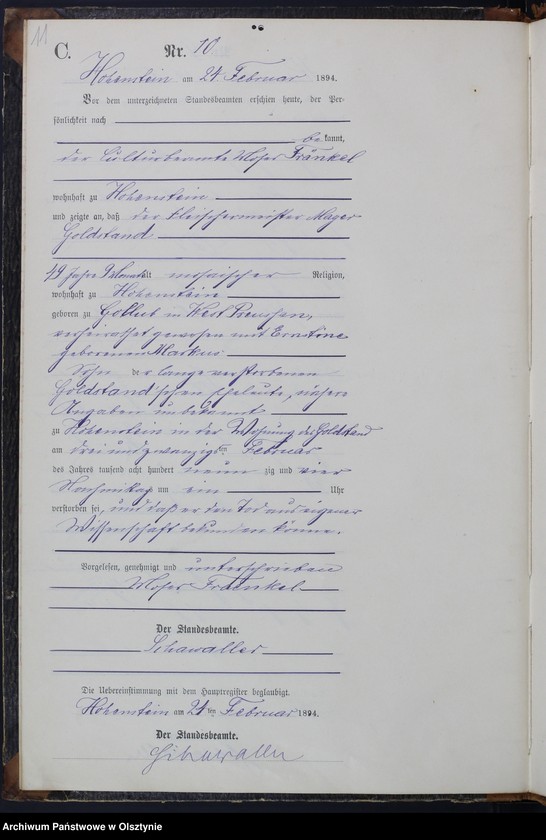 11
C.
Nr. 10
Hohenstein am 24 Februar 1894.
Vor dem unterzeichneten Standesbeamten erschien heute, der Per-
sönlichkeit nach
bekannt,
der Cultusbeamte Moses Fränkel
wohnhaft zu Hohenstein
und zeigte an, daß der Fleischermeister Mayer
Goldstand
49 Jahre 9 Monate alt mosaischer Religion,
wohnhaft zu Hohenstein
geboren zu Gollub in West Preussen,
verheirathet gewesen mit Ernstine
geborenen Markus
Sohn der lange verstorbenen
Goldstand'schen Eheleute, nähere
Angaben unbekannt
zu Hohenstein in der Wohnung des Goldstand
am drei und zwanzigsten Februar
des Jahres tausend acht hundert neunzig und vier
Nachmittags um ein Uhr
verstorben sei, und daß er den Tod aus eigener
Wissenschaft bekunden könne.
Vorgelesen, genehmigt und unterschrieben
Moses Fraenkel
Der Standesbeamte.
Schawaller
Die Uebereinstimmung mit dem Hauptregister beglaubigt.
Hohenstein am 24ten Februar 1894.
Der Standesbeamte.
Schawaller
Archiwum Państwowe w Olsztynie